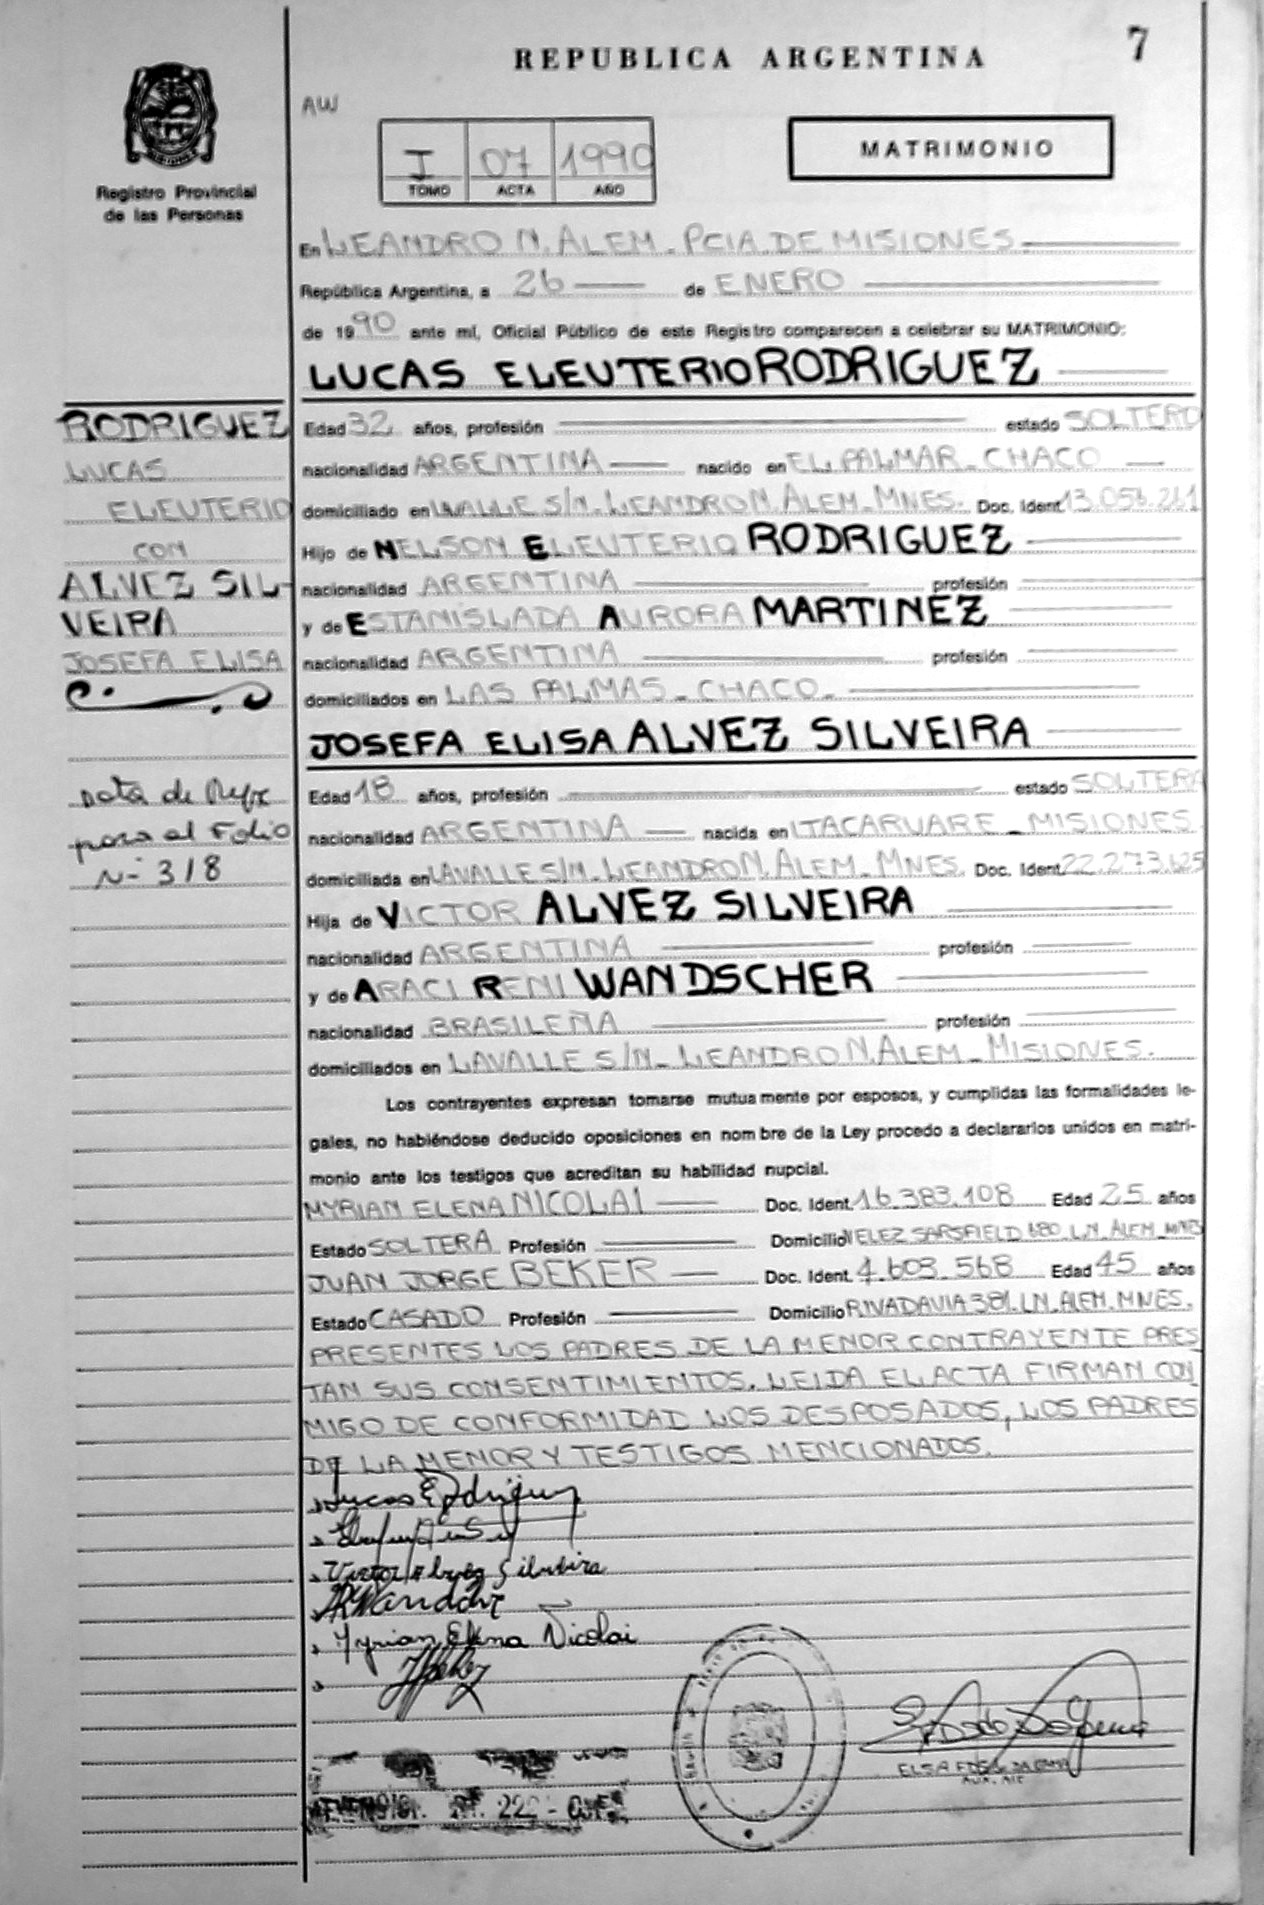 7
REPUBLICA ARGENTINA
AW
I 07 1990
TOMO ACTA AÑO
MATRIMONIO
Registro Provincial
de las Personas
En LEANDRO N. ALEM - PCIA. DE MISIONES
República Argentina, a 26 de ENERO
de 1990 ante mí, Oficial Público de este Registro comparecen a celebrar su MATRIMONIO:
LUCAS ELEUTERIO RODRIGUEZ
RODRIGUEZ
LUCAS
ELEUTERIO
CON
ALVEZ SIL-
VEIRA
JOSEFA ELISA
Nota de Refe
para al Folio
N- 318
Edad 32 años, profesión estado SOLTERO
nacionalidad ARGENTINA nacido en EL PALMAR - CHACO
domiciliado en LAVALLE S/N. LEANDRO N. ALEM - MNES. Doc. Ident.
Hijo de NELSON ELEUTERIO RODRIGUEZ
nacionalidad ARGENTINA profesión
y de ESTANISLADA AURORA MARTINEZ
nacionalidad ARGENTINA profesión
domiciliados en LAS PALMAS - CHACO -
JOSEFA ELISA ALVEZ SILVEIRA
Edad 18 años, profesión estado SOLTERA
nacionalidad ARGENTINA nacida en ITACARUARE - MISIONES
domiciliada en LAVALLE S/N - LEANDRO N. ALEM - MNES. Doc. Ident. 22.273.625
Hija de VICTOR ALVEZ SILVEIRA
nacionalidad ARGENTINA profesión
y de ARACI RENI WANDSCHER
nacionalidad BRASILEÑA profesión
domiciliados en LAVALLE S/N - LEANDRO N. ALEM - MISIONES.
Los contrayentes expresan tomarse mutuamente por esposos, y cumplidas las formalidades le-
gales, no habiéndose deducido oposiciones en nombre de la Ley procedo a declararlos unidos en matri-
monio ante los testigos que acreditan su habilidad nupcial.
MYRIAN ELENA NICOLAI Doc. Ident. 16.383.108 Edad 25 años
Estado SOLTERA Profesión Domicilio VELEZ SARSFIELD 680. L.N. ALEM - MNES
JUAN JORGE BEKER Doc. Ident. 7.603.568 Edad 45 años
Estado CASADO Profesión Domicilio RIVADAVIA 381. L.N. ALEM. MNES.
PRESENTES LOS PADRES DE LA MENOR CONTRAYENTE PRES
TAN SUS CONSENTIMIENTOS. LEIDA EL ACTA FIRMAN CON
MIGO DE CONFORMIDAD LOS DESPOSADOS, LOS PADRES
DE LA MENOR Y TESTIGOS MENCIONADOS.
Lucas E Rodriguez
Victor Alvez Silveira
Myrian Elena Nicolai
ELSA